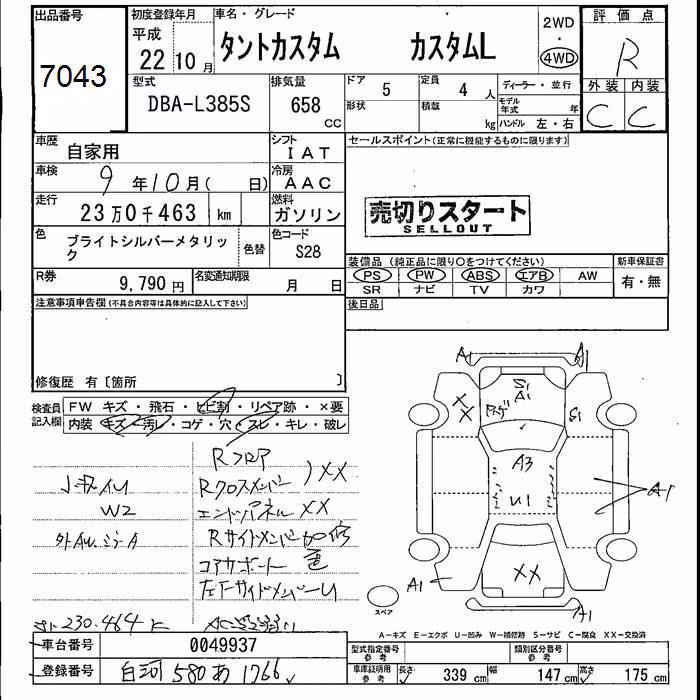 出品番号
7043
初度登録年月
平成
22 10月
車名・グレード
タントカスタム カスタムL
2WD
・
4WD
評価点
R
外装 内装
C C
型式
DBA-L385S
排気量
658
CC
ドア
5
形状
定員
4 人
積載
kg
ディーラー・並行
モデル年式 年
ハンドル 左・右
車歴
自家用
シフト
IAT
車検
9 年 10 月( 日)
冷房
AAC
走行
23万0千463 km
燃料
ガソリン
色
ブライトシルバーメタリック
色替
色コード
S28
R券
9,790 円
名変通知期限
月 日
セールスポイント(正常に機能するものに限ります)
売切りスタート
SELLOUT
装備品(純正品に限り○をつけてください)
PS PW ABS エアB AW
SR ナビ TV カワ
新車保証書
有・無
後日品
注意事項申告欄(不具合内容等は具体的に記入して下さい)
修復歴 有〔箇所 〕
検査員記入欄
FW キズ・飛石・ヒビ割・リペア跡・×要
内装 キズ・汚レ・コゲ・穴・スレ・キレ・破レ
Rフロア
Rクロスメンバー ) XX
エンドパネル XX
Rサイドメンバー
コアサポート
W2
230.464
A1 A1
S1
A1
XX
S1
A3
U1
A1
XX
A1
A1
スペア
A-キズ E-エクボ U-凹み W-補修跡 S-サビ C-腐食 XX-交換済
車台番号
0049937
登録番号
白河 580 あ 1766
型式指定番号
参考
類別区分番号
参考
車庫証明用
参考
長さ 339 cm 幅 147 cm 高さ 175 cm